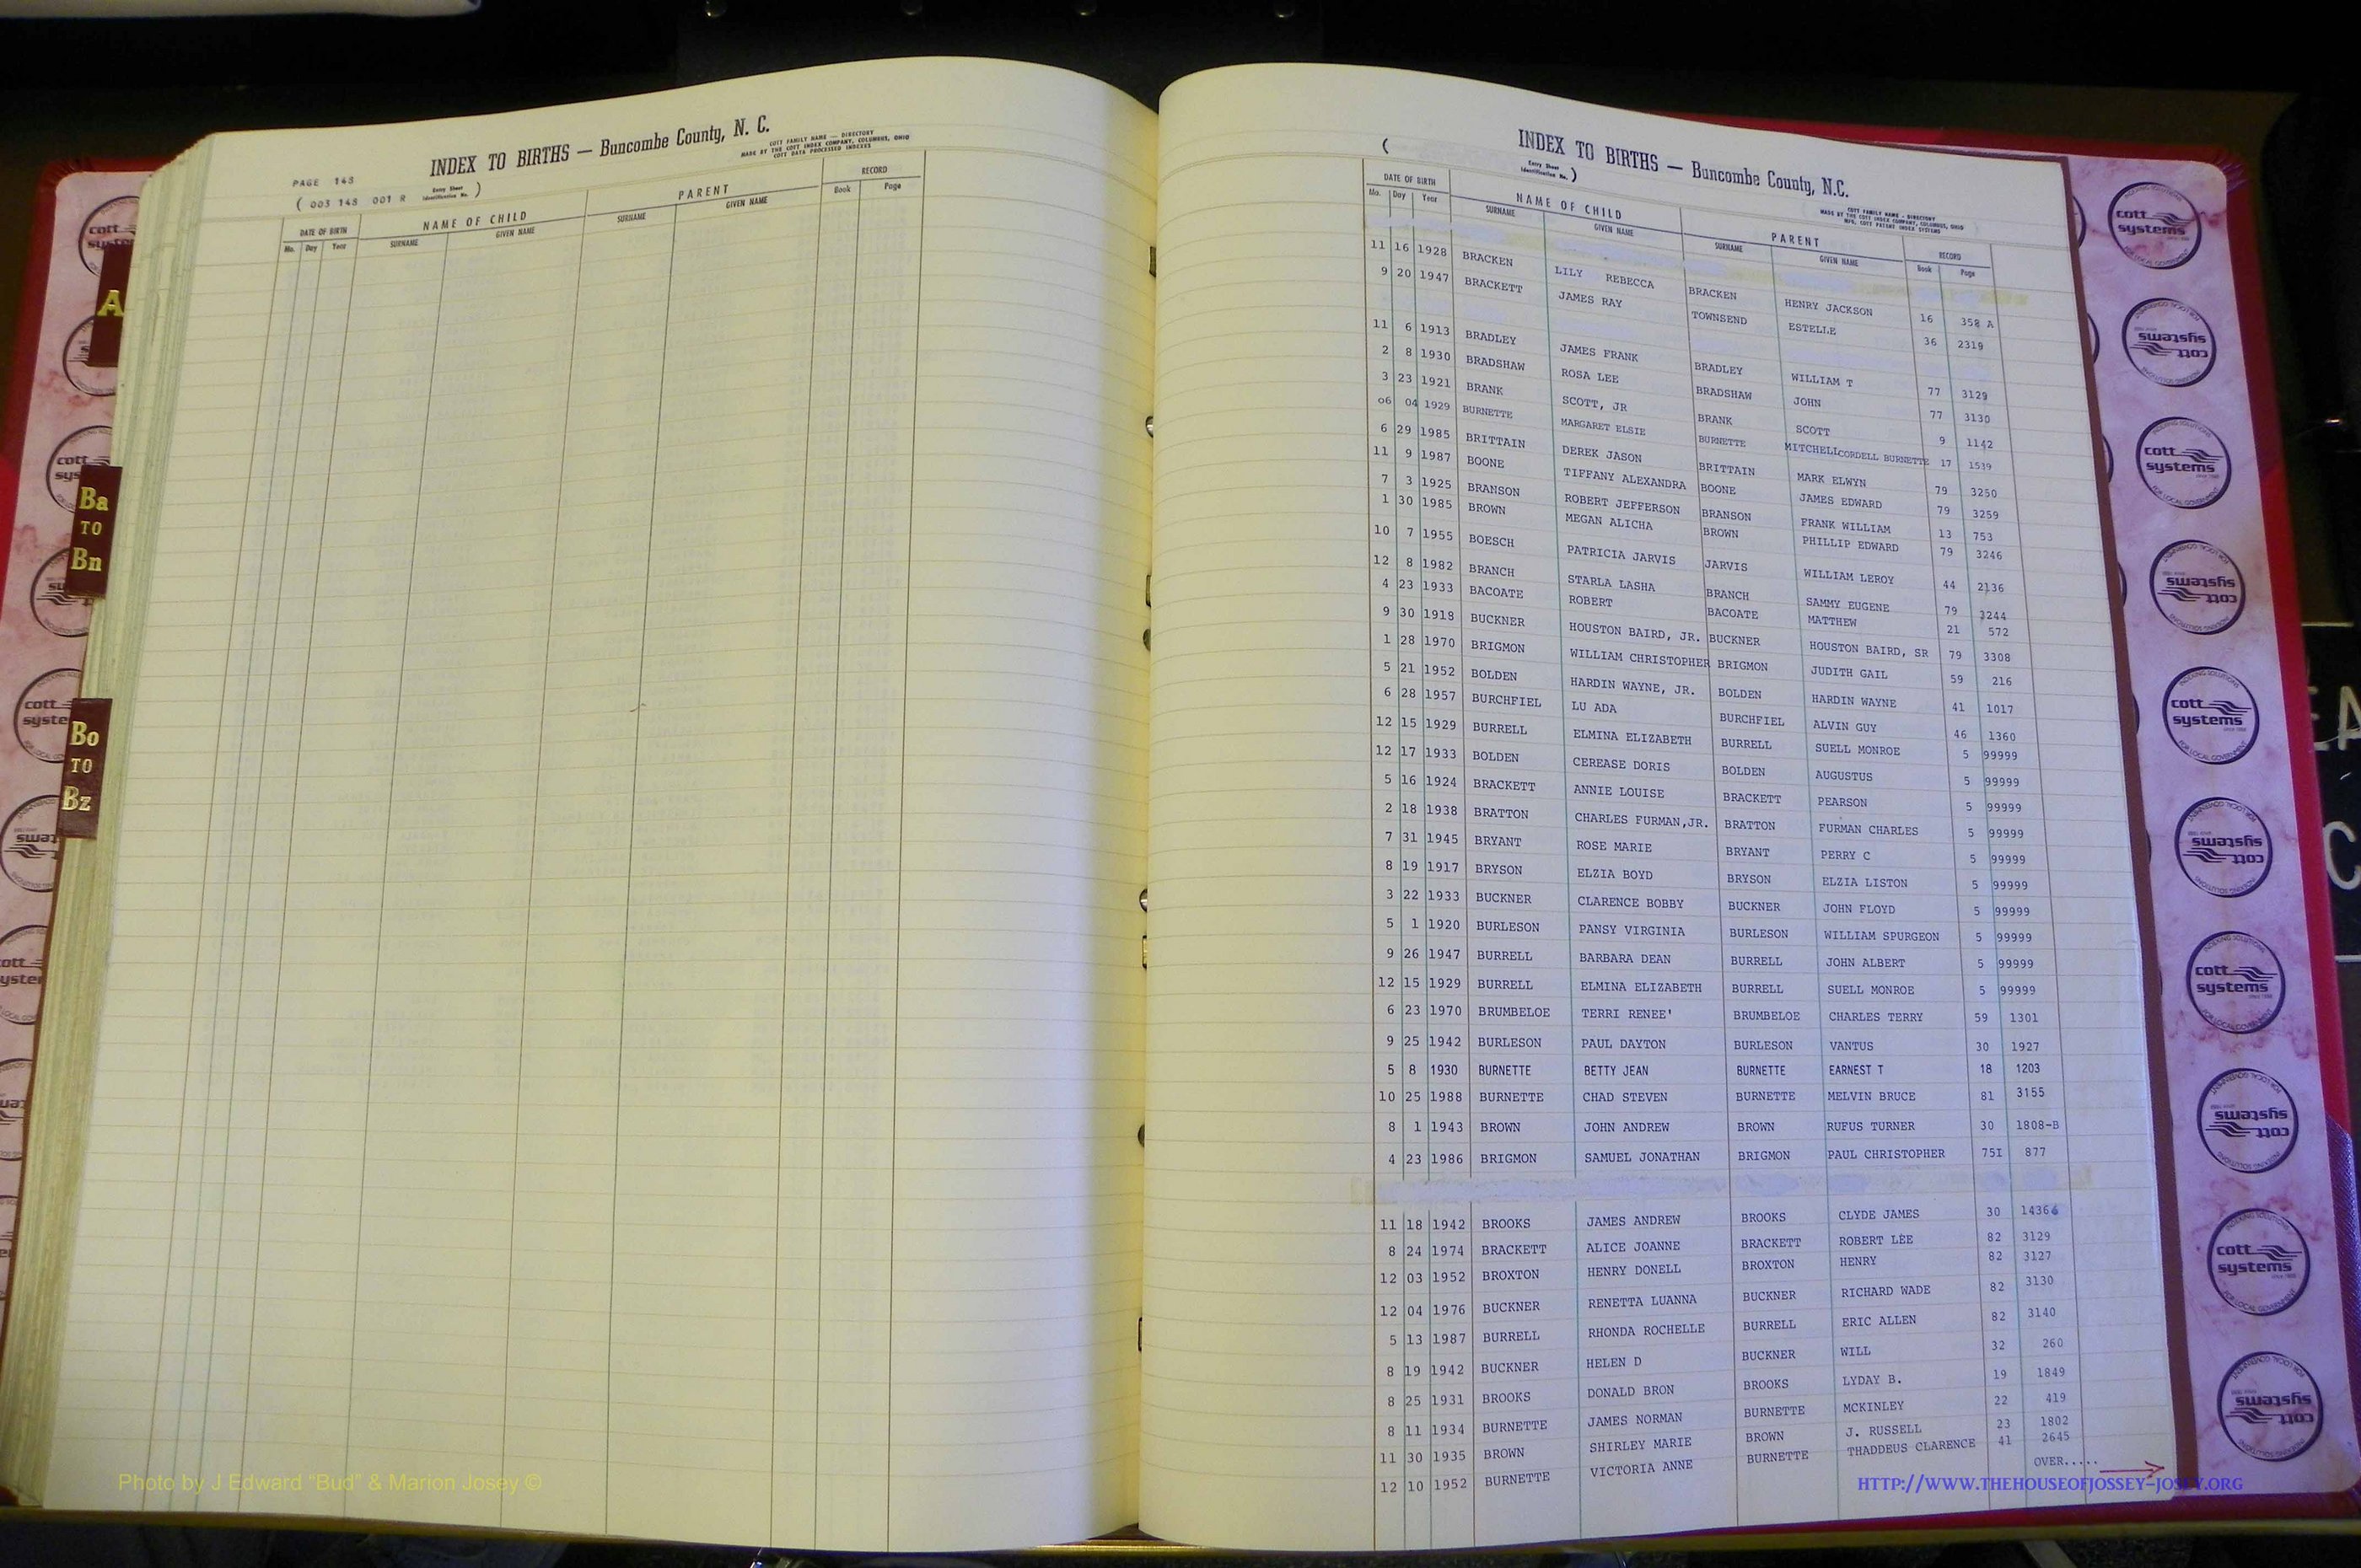 INDEX TO BIRTHS — Buncombe County, N. C.
COTT FAMILY NAME — DIRECTORY
MADE BY THE COTT INDEX COMPANY, COLUMBUS, OHIO
COTT DATA PROCESSED INDEXES
PAGE 148
( 003 148 001 R Entry Sheet Identification No. )
DATE OF BIRTH NAME OF CHILD PARENT RECORD
Mo. Day Year SURNAME GIVEN NAME SURNAME GIVEN NAME Book Page
A
Ba TO Bn
Bo TO Bz
INDEX TO BIRTHS — Buncombe County, N.C.
( Entry Sheet Identification No. )
COTT FAMILY NAME - DIRECTORY
MADE BY THE COTT INDEX COMPANY, COLUMBUS, OHIO
MFG. COTT PATENT INDEX SYSTEMS
DATE OF BIRTH NAME OF CHILD PARENT RECORD
Mo. Day Year SURNAME GIVEN NAME SURNAME GIVEN NAME Book Page
11 16 1928 BRACKEN LILY REBECCA BRACKEN HENRY JACKSON 16 358 A
9 20 1947 BRACKETT JAMES RAY TOWNSEND ESTELLE 36 2319
11 6 1913 BRADLEY JAMES FRANK BRADLEY WILLIAM T 77 3129
2 8 1930 BRADSHAW ROSA LEE BRADSHAW JOHN 77 3130
3 23 1921 BRANK SCOTT, JR BRANK SCOTT 9 1142
06 04 1929 BURNETTE MARGARET ELSIE BURNETTE MITCHELL CORDELL BURNETTE 17 1539
6 29 1985 BRITTAIN DEREK JASON BRITTAIN MARK ELWYN 79 3250
11 9 1987 BOONE TIFFANY ALEXANDRA BOONE JAMES EDWARD 79 3259
7 3 1925 BRANSON ROBERT JEFFERSON BRANSON FRANK WILLIAM 13 753
1 30 1985 BROWN MEGAN ALICHA BROWN PHILLIP EDWARD 79 3246
10 7 1955 BOESCH PATRICIA JARVIS JARVIS WILLIAM LEROY 44 2136
12 8 1982 BRANCH STARLA LASHA BRANCH SAMMY EUGENE 79 3244
4 23 1933 BACOATE ROBERT BACOATE MATTHEW 21 572
9 30 1918 BUCKNER HOUSTON BAIRD, JR. BUCKNER HOUSTON BAIRD, SR 79 3308
1 28 1970 BRIGMON WILLIAM CHRISTOPHER BRIGMON JUDITH GAIL 59 216
5 21 1952 BOLDEN HARDIN WAYNE, JR. BOLDEN HARDIN WAYNE 41 1017
6 28 1957 BURCHFIEL LU ADA BURCHFIEL ALVIN GUY 46 1360
12 15 1929 BURRELL ELMINA ELIZABETH BURRELL SUELL MONROE 5 99999
12 17 1933 BOLDEN CEREASE DORIS BOLDEN AUGUSTUS 5 99999
5 16 1924 BRACKETT ANNIE LOUISE BRACKETT PEARSON 5 99999
2 18 1938 BRATTON CHARLES FURMAN,JR. BRATTON FURMAN CHARLES 5 99999
7 31 1945 BRYANT ROSE MARIE BRYANT PERRY C 5 99999
8 19 1917 BRYSON ELZIA BOYD BRYSON ELZIA LISTON 5 99999
3 22 1933 BUCKNER CLARENCE BOBBY BUCKNER JOHN FLOYD 5 99999
5 1 1920 BURLESON PANSY VIRGINIA BURLESON WILLIAM SPURGEON 5 99999
9 26 1947 BURRELL BARBARA DEAN BURRELL JOHN ALBERT 5 99999
12 15 1929 BURRELL ELMINA ELIZABETH BURRELL SUELL MONROE 5 99999
6 23 1970 BRUMBELOE TERRI RENEE' BRUMBELOE CHARLES TERRY 59 1301
9 25 1942 BURLESON PAUL DAYTON BURLESON VANTUS 30 1927
5 8 1930 BURNETTE BETTY JEAN BURNETTE EARNEST T 18 1203
10 25 1988 BURNETTE CHAD STEVEN BURNETTE MELVIN BRUCE 81 3155
8 1 1943 BROWN JOHN ANDREW BROWN RUFUS TURNER 30 1808-B
4 23 1986 BRIGMON SAMUEL JONATHAN BRIGMON PAUL CHRISTOPHER 75I 877
11 18 1942 BROOKS JAMES ANDREW BROOKS CLYDE JAMES 30 1436
8 24 1974 BRACKETT ALICE JOANNE BRACKETT ROBERT LEE 82 3129
12 03 1952 BROXTON HENRY DONELL BROXTON HENRY 82 3127
12 04 1976 BUCKNER RENETTA LUANNA BUCKNER RICHARD WADE 82 3130
5 13 1987 BURRELL RHONDA ROCHELLE BURRELL ERIC ALLEN 82 3140
8 19 1942 BUCKNER HELEN D BUCKNER WILL 32 260
8 25 1931 BROOKS DONALD BRON BROOKS LYDAY B. 19 1849
8 11 1934 BURNETTE JAMES NORMAN BURNETTE MCKINLEY 22 419
11 30 1935 BROWN SHIRLEY MARIE BROWN J. RUSSELL 23 1802
12 10 1952 BURNETTE VICTORIA ANNE BURNETTE THADDEUS CLARENCE 41 2645
OVER.....
cott systems
FOR LOCAL GOVERNMENT
Photo by J Edward "Bud" & Marion Josey ©
HTTP://WWW.THEHOUSEOFJOSSEY-JOSEY.ORG